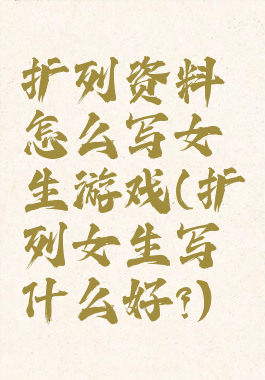 扩列资料
怎么写女
生游戏(扩
列女生写
什么好?)